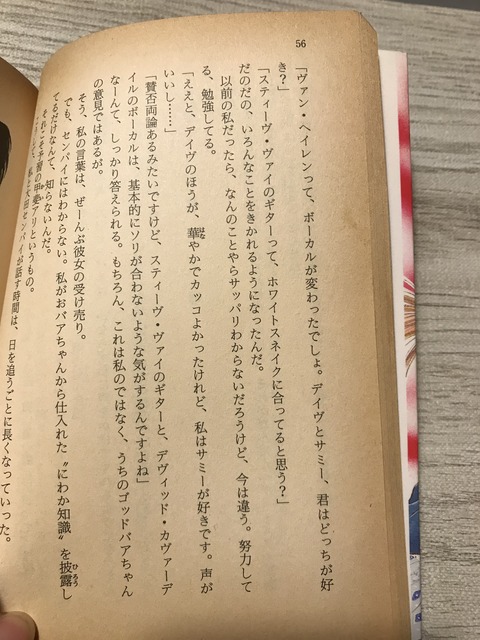 56
「ヴァン・ヘイレンって、ボーカルが変わったでしょ。デイヴとサミー、君はどっちが好
き？」
「スティーヴ・ヴァイのギターって、ホワイトスネイクに合ってると思う？」
だのだの、いろんなことをきかれるようになったんだ。
以前の私だったら、なんのことやらサッパリわからないだろうけど、今は違う。努力して
る、勉強してる。
「ええと、デイヴのほうが、華やかでカッコよかったけれど、私はサミーが好きです。声が
いいし……」
「賛否両論あるみたいですけど、スティーヴ・ヴァイのギターと、デヴィッド・カヴァーデ
イルのボーカルは、基本的にソリが合わないような気がするんですよね」
なーんて、しっかり答えられる。もちろん、これは私のではなく、うちのゴッドバアちゃん
の意見ではあるが。
そう、私の言葉は、ぜーんぶ彼女の受け売り。
でも、センパイにはわからない。私がおバアちゃんから仕入れた〝にわか知識〟を披露し
てるだけなんて、知らないんだ。
それこそ予習の甲斐アリというもの。
センパイが話す時間は、日を追うごとに長くなっていった。